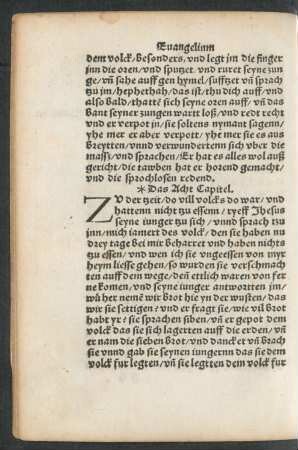 Euangelium
dem volck/ besonders/ vnd legt jm die finger
jnn die oren/ vnd sputzet/ vnd ruret seyne zun
ge/ vñ sahe auff gen hymel/ sufftzet vñ sprach
zu jm/ hephethah/ das ist/ thu dich auff/ vnd
als bald/ thattẽ sich seyne oren auff/ vñ das
bant seyner zungen wartt loß/ vnd redt recht
vnd er verpot jn/ sie soltens nymant sagenn/
yhe mer er aber verpott/ yhe mer sie es aus
breytten/ vnnd verwundertenn sich vber die
mass/ vnd sprachen/ Er hat es alles wol auß
gericht/ die tawben hat er horend gemacht/
vnd die sprochlosen redend.
* Das Acht Capitel.
ZV der zeit/ do vill volcks do war/ vnd
hattenn nicht zu essenn/ ryeff Jhesus
seyne iunger zu sich/ vnnd sprach tzu
jnn/ mich iamert des volck/ den sie haben nu
drey tage bei mir beharret vnd haben nichts
zu essen/ vnd wen ich sie vngeessen von myr
heym liesse gehen/ so wurden sie verschmach
ten auff dem wege/ deñ etlich waren von fer
ne komen/ vnd seyne iunger antwortten jm/
wũ her nemẽ wir brot hie yn der wusten/ das
wir sie settigen? vnd er fragt sie/ wie vil brot
habt yr? sie sprachen siben/ vñ er gepot dem
volck das sie sich lagerten auff die erden/ vñ
er nam die sieben brot/ vnd dancket vñ brach
sie vnnd gab sie seynen iungernn das sie dem
volck fur legten/ vñ sie legtten dem volck fur